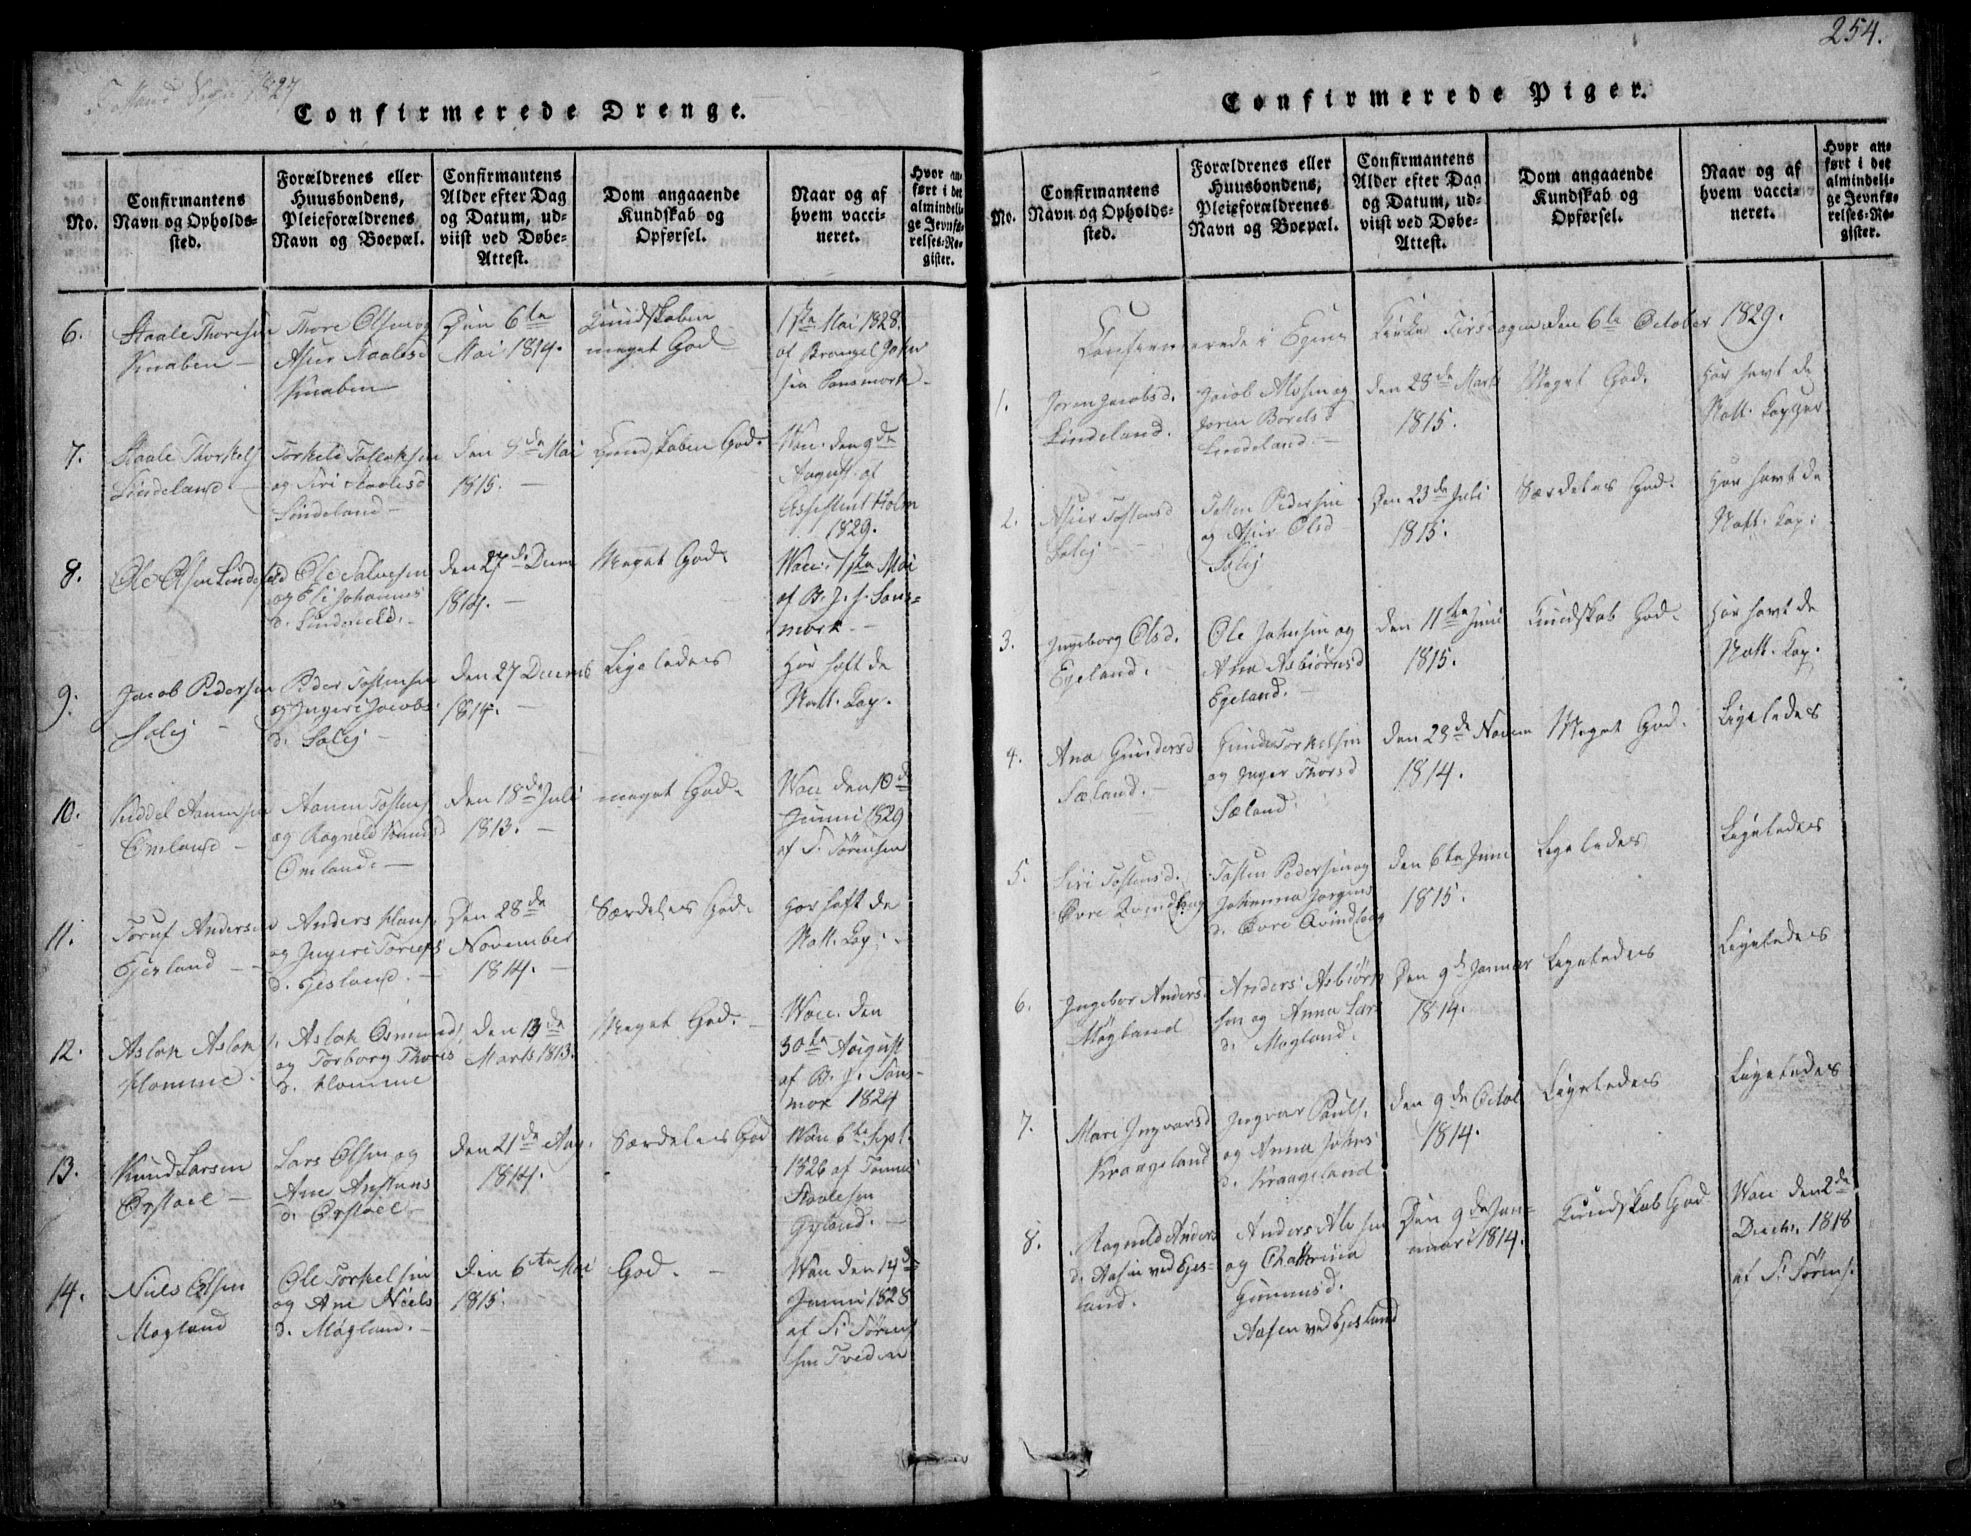 254.
1827
Confirmerede Drenge.
No.
Confirmantens
Navn og Opholds-
sted.
Forældrenes eller
Huusbondens,
Pleieforældrenes
Navn og Boepæl.
Confirmantens
Alder efter Dag
og Datum, ud-
viist ved Døbe-
Attest.
Dom angaaende
Kundskab og
Opførsel.
Naar og af
hvem vacci-
neret.
Hvor an-
ført i det
almindeli-
ge Jevnfø-
relses-Re-
gister.
6.
Staale Thoresen
Knaben
Thore Olsen og
Asier Staalesd
Knaben
Den 6te
Mai 1814.
Kundskaben
meget God
1ste Mai 1828.
af
7.
Staale Thorkels
Lindeland
Torkild Tallaksen
og Siri Staalesd
Lindeland
den Mai
1815.
Kundskaben God.
Vac. den 9de
August af
Assistent Holm
1829.
8.
Ole Olsen
Ole Salvesen
og Eli Johannes
d.
den 27de Decem
1814.
Meget God.
Vacc. 1ste Mai
af B. J. S. Sans-
mork
9.
Jacob Pedersen
Solej
Peder Tostensen
og Ingeri Jacobs
d. Solej
den 27 Decemb
1814.
Ligeledes
Har haft de
Natt. Kop.
10.
Kiddel Aanensen
Omland
Aanen Tostens
og Ragnild
Omland
den 18de Juli
1813.
meget God.
Vac den 10de
Junni 1829
af S. Sörensen
11.
Toruf Andersen
Egesland
Anders Hans
og Ingeri Torufs
d. Egesland.
Den 28de
November
1814.
Særdeles God.
Har haft de
Natt. Kop.
12.
Aslak Aslak
Homme.
Aslak Osmund
og Torborg Thores
d. Homme
den 13de
Marts 1813.
Meget God.
Vacc. den
30te August
af B. J. Sans-
mor 1824
13.
Knud Larsen
Ørstoel
Lars Olsen og
Ane
d. Ørstoel
den 21de Aug.
1814.
Særdeles God
Vac 6te Sept.
1826 af Tønnes
Staalesen
Gyland.
14.
Niels Olsen
Mogland
Ole Torkelsen
og Ane Niels
d. Møgland.
den 6te Mai
1815.
God.
Vac den 14de
Junni 1828
af S. Sörens
sen Tveden
Confirmerede Piger.
No.
Confirmantens
Navn og Opholds-
sted.
Forældrenes eller
Huusbondens,
Pleieforældrenes
Navn og Boepæl.
Confirmantens
Alder efter Dag
og Datum, ud-
viist ved Døbe-
Attest.
Dom angaaende
Kundskab og
Opførsel.
Naar og af
hvem vacci-
neret.
Hvor an-
ført i det
almindeli-
ge Jevnfø-
relses-Re-
gister.
Confirmerede i Egene Kirke Tirsdagen den 6te October 1829.
1.
Joren Jacobsd.
Lindeland.
Jacob Alvsen og
Joren Borelsd
Lindeland.
den 28de Marts
1815.
Meget God.
Har havt de
Natt. Kopper
2.
Asier Tostensd
Solej
Tosten Pedersen
og Asier Olsd
Solej
Den 23de Juli
1815.
Særdeles God.
Har havt de
Natt. Kop:
3.
Ingeborg Olsd.
Egeland.
Ole Johnsen og
Ana Asbiörnsd
Egeland.
den 11te Juni
1815.
Kundskab God.
Har havt de
Natt. Kop.
4.
Ana Gundersd
Sæland.
Gunder Torkelsen
og Inger Thorsd
Sæland.
den 23de Novem
1814.
Meget God.
Ligeledes
5.
Siri Tostensd.
Øvre
Tosten Pedersen og
Johanna Jorgens
d. Øvre
den 6te Juni
1815.
Ligeledes
Ligeledes
6.
Ingebor Andersd
Mögland
Anders Asbiörn
sen og Anna Lars
d. Mogland.
Den 9de Januar
1814.
Ligeledes
Ligeledes
7.
Mari Ingvarsd
Kraageland
Ingvar Pauls.
og Anna Johns
d. Kraageland
den 9de Octob
1814.
Ligeledes
Ligeledes
8.
Ragnild Anders
d. Aasen ved Eges-
land.
Anders
og Chattrina
Gununsd.
Aasen ved Egesland
Den 9de Jan-
nuari 1814.
Kundskab God
Vacc den 2de
Decbr. 1818
af S. Sörens.